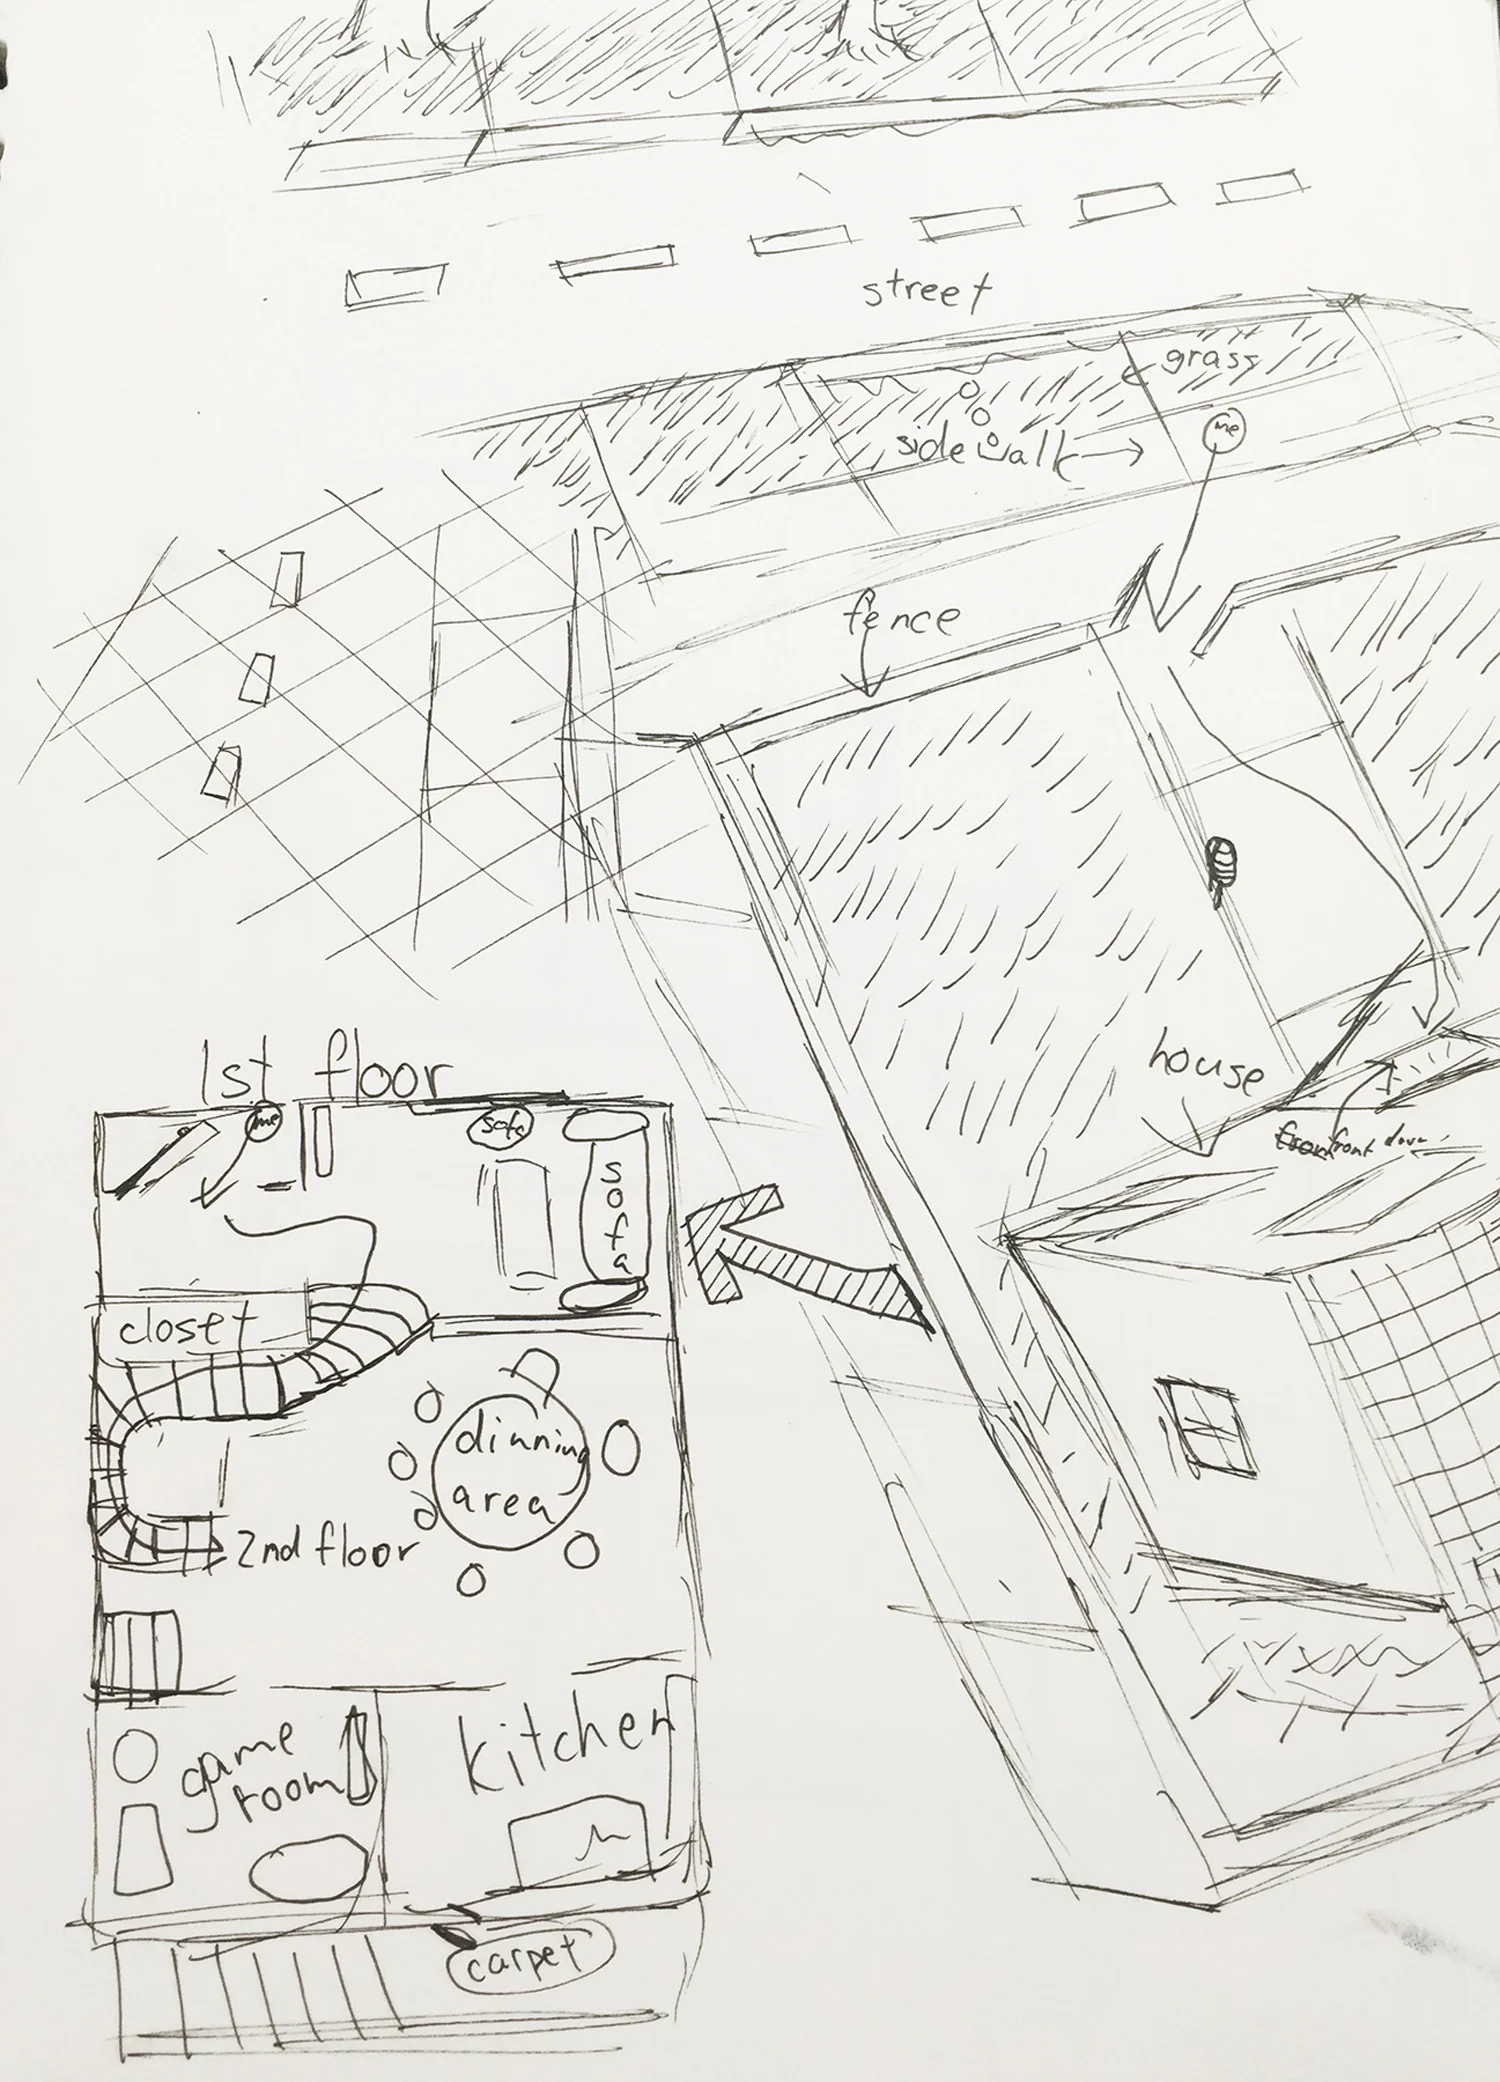 street
grass
me
side walk
fence
house
front door
1st floor
me
sofa
sofa
closet
dinning
area
2nd floor
game
room
kitchen
carpet